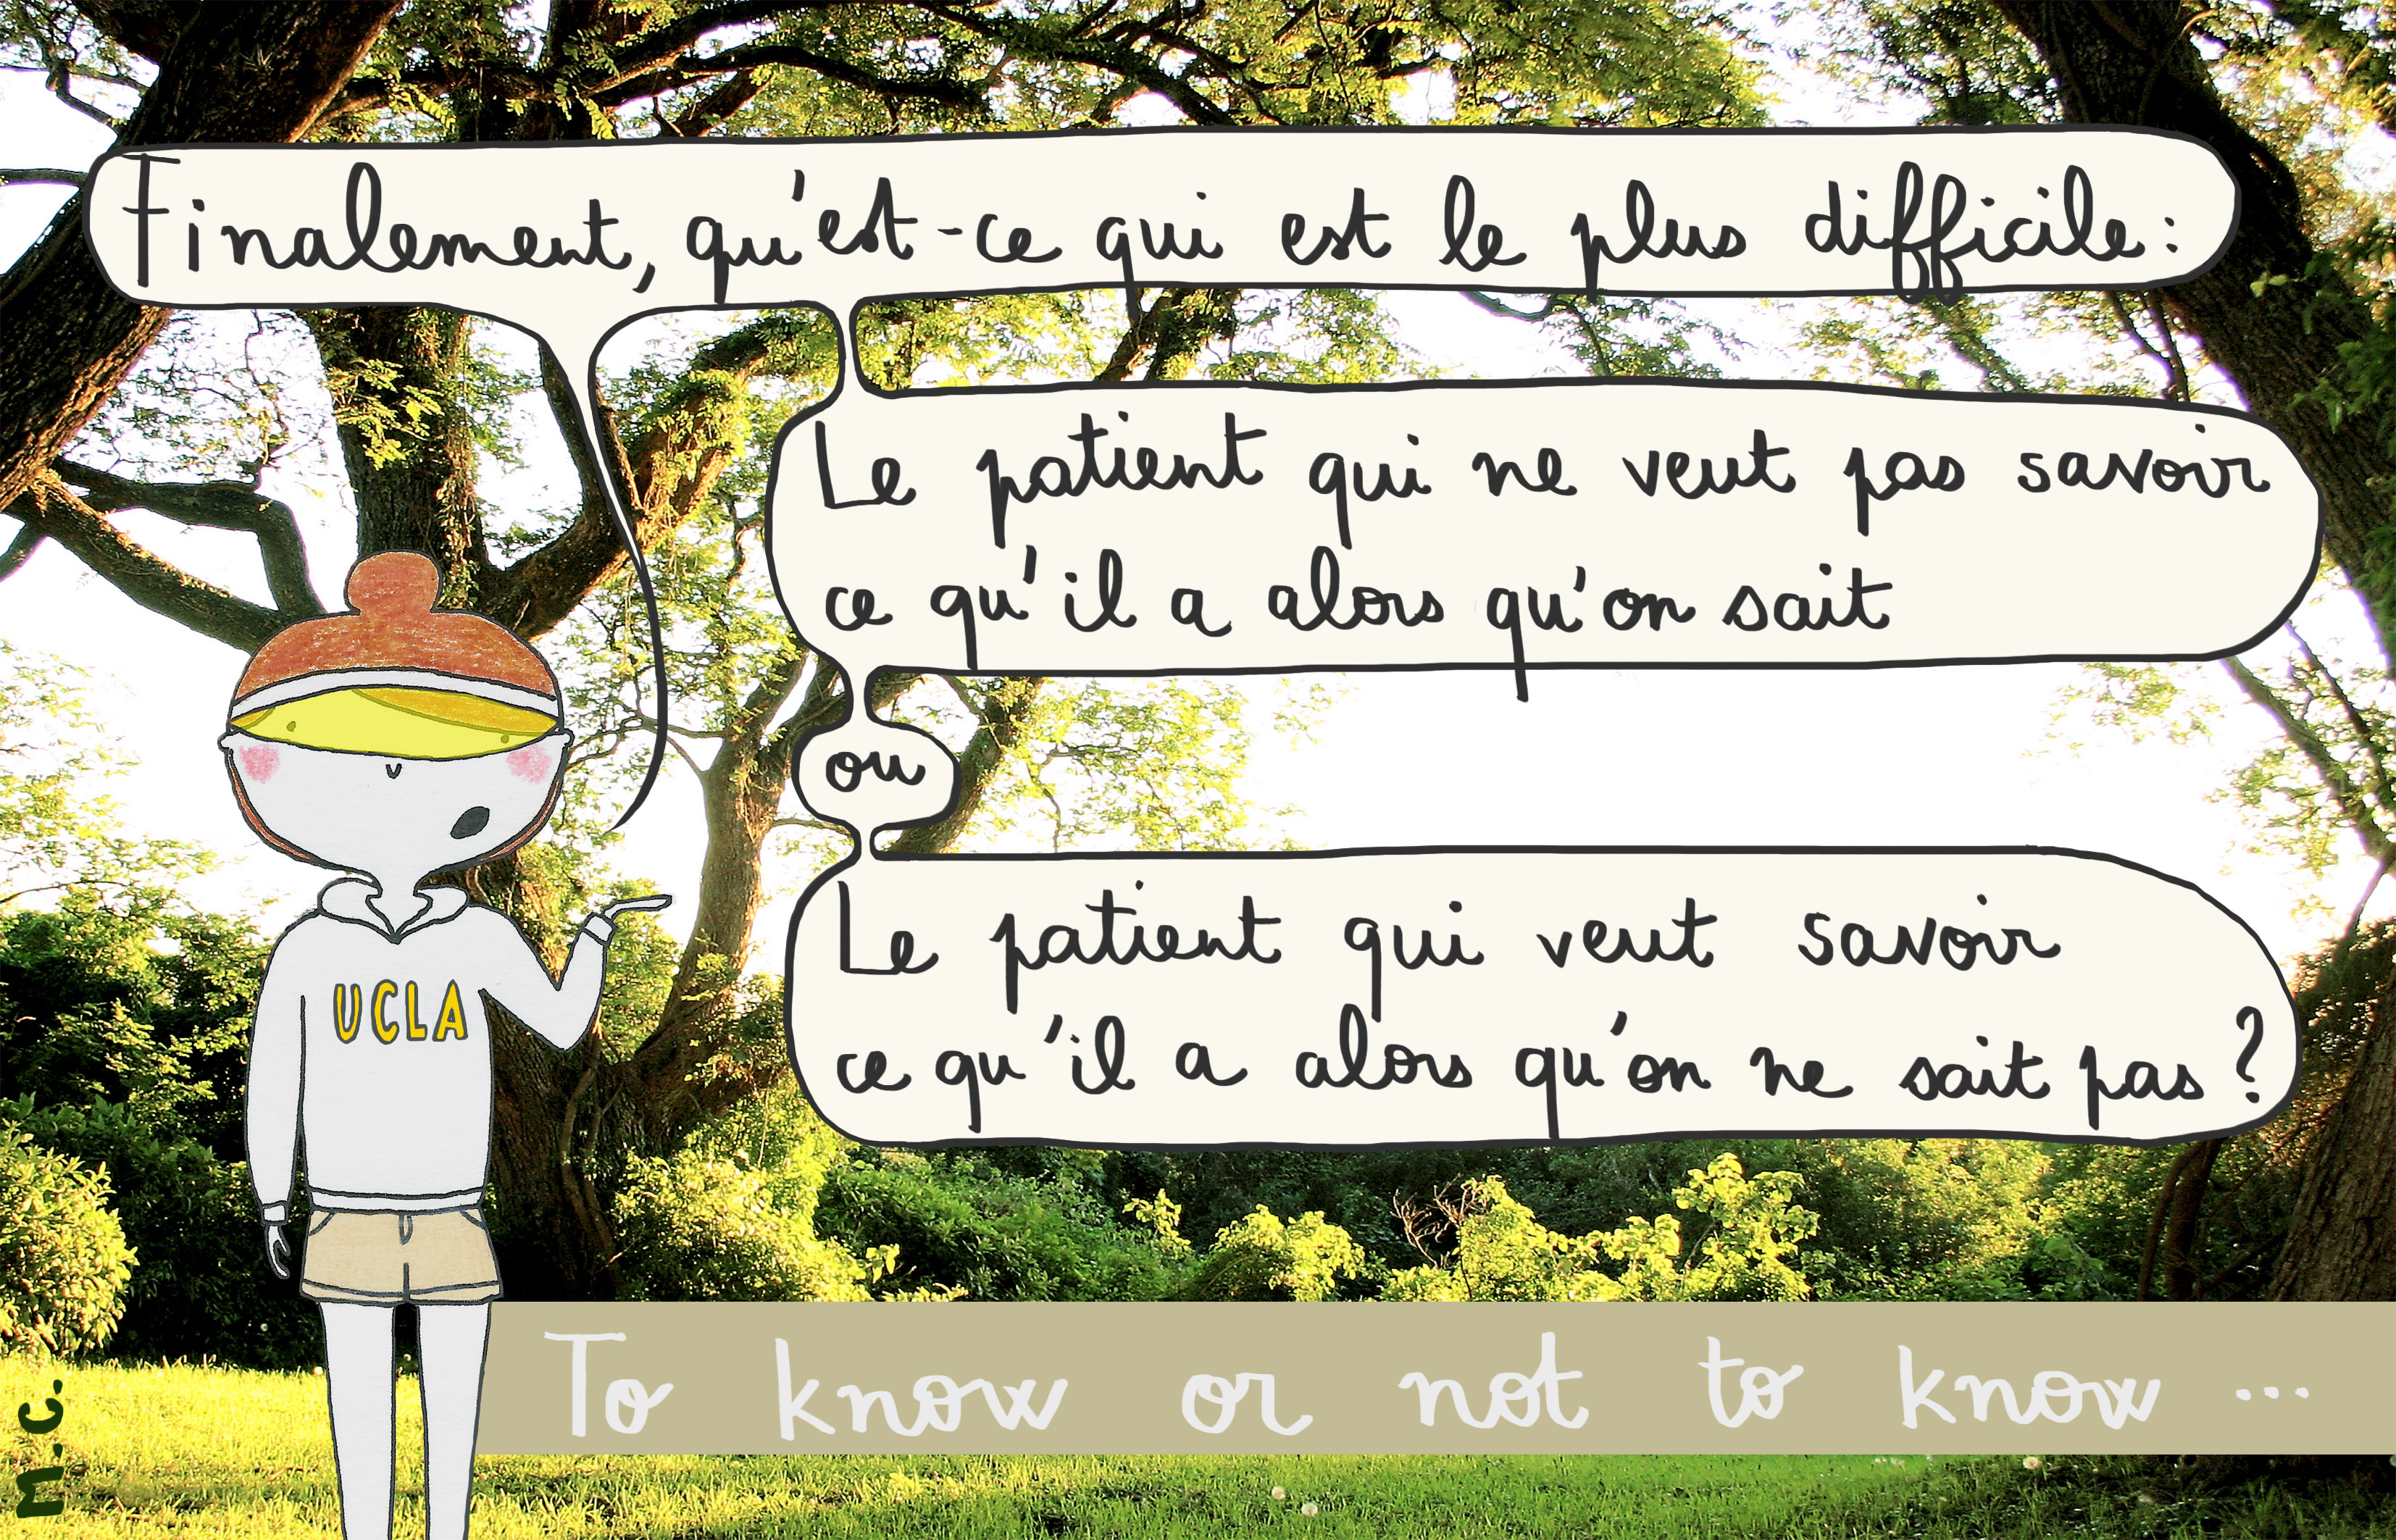 Finalement, qu'est-ce qui est le plus difficile:
Le patient qui ne veut pas savoir
ce qu'il a alors qu'on sait
ou
Le patient qui veut savoir
ce qu'il a alors qu'on ne sait pas ?
UCLA
To know or not to know ...
m.c.